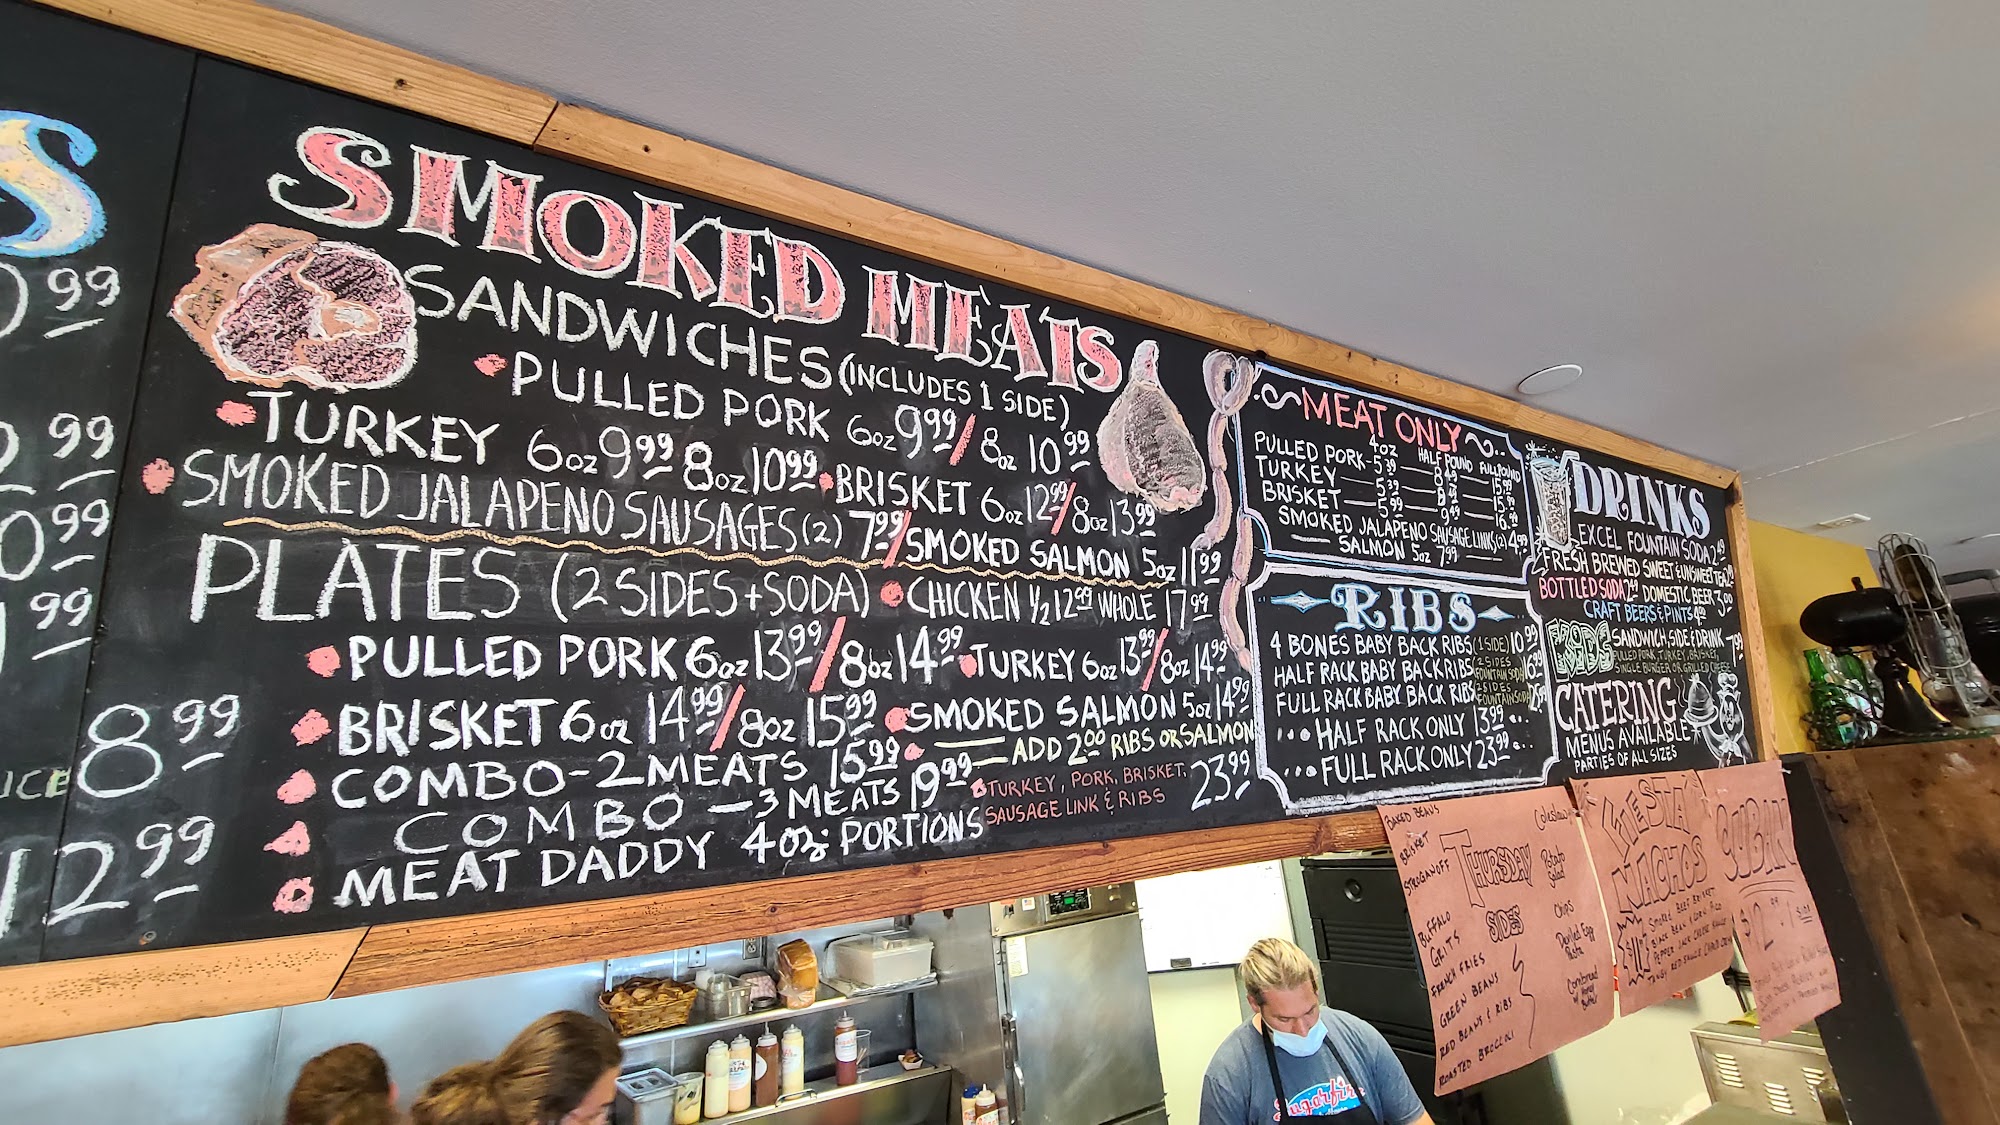 SMOKED MEATS
SANDWICHES (INCLUDES 1 SIDE)
PULLED PORK 6oz 9.99/8oz 10.99
TURKEY 6oz 9.99 8oz 10.99
BRISKET 6oz 12.99/8oz 13.99
SMOKED JALAPENO SAUSAGES (2) 7.99/
SMOKED SALMON 5oz 11.99
PLATES (2 SIDES + SODA)
CHICKEN 1/2 12.99 WHOLE 17.99
PULLED PORK 6oz 13.99/8oz 14.99
TURKEY 6oz 13.99/8oz 14.99
BRISKET 6oz 14.99/8oz 15.99
SMOKED SALMON 5oz 14.99
COMBO - 2 MEATS 15.99
ADD 2.00 RIBS OR SALMON
COMBO - 3 MEATS 19.99
MEAT DADDY 4oz PORTIONS
TURKEY, PORK, BRISKET,
SAUSAGE LINK & RIBS
23.99
MEAT ONLY
4oz HALF POUND FULL POUND
PULLED PORK - 5.39 8.49 15.99
TURKEY 5.39 15.99
BRISKET 5.99 9.49 16.99
SMOKED JALAPENO SAUSAGE LINKS (2) 4.99
SALMON 5oz 7.99
RIBS
4 BONES BABY BACK RIBS (1 SIDE) 10.99
HALF RACK BABY BACK RIBS 2 SIDES FOUNTAIN SODA 16.99
FULL RACK BABY BACK RIBS 2 SIDES FOUNTAIN SODA
HALF RACK ONLY 13.99
FULL RACK ONLY 23.99
DRINKS
EXCEL FOUNTAIN SODA 2.49
FRESH BREWED SWEET & UNSWEET TEA
BOTTLED SODA DOMESTIC BEER 3.00
CRAFT BEERS & PINTS
KIDS SANDWICH SIDE & DRINK 7.99
PULLED PORK, TURKEY, BRISKET,
SINGLE BURGER OR GRILLED CHEESE
CATERING
MENUS AVAILABLE
PARTIES OF ALL SIZES
99
99
99
99
8.99
12.99
THURSDAY
SIDES
BAKED BEANS
BRISKET
STROGANOFF
BUFFALO
GRITS
FRENCH FRIES
GREEN BEANS
RED BEANS & RIBS
ROASTED BROCCOLI
Coleslaw
Potato
Salad
Chips
Deviled Egg
Cornbread
w/ Honey
Butter
FIESTA
NACHOS
SMOKED BEEF BRISKET
CUBAN